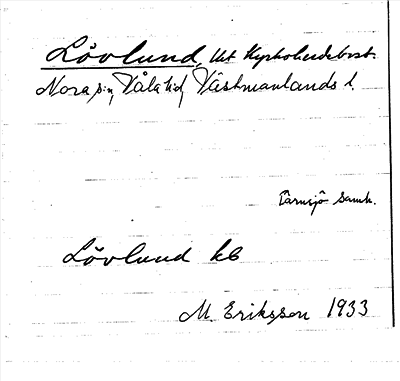 Lövlund, lht Kyrkoherdebost.
Nora sn, Våla hd, Västmanlands l.
Tärnsjö samh.
Lövlund kb
M. Eriksson 1933